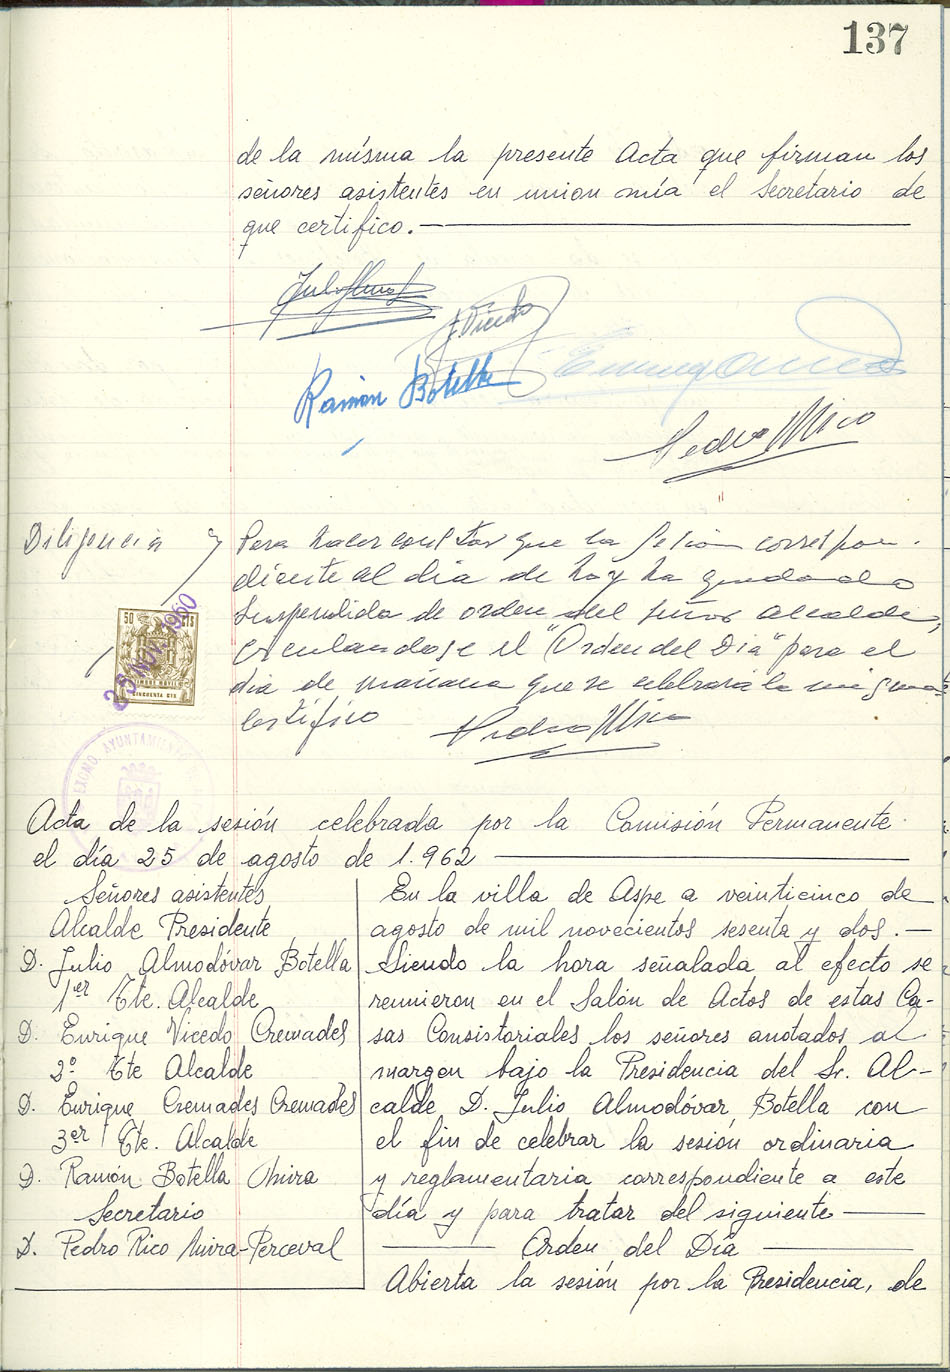 137
de la misma la presente Acta que firman los
señores asistentes en union mía el Secretario de
que certifico.
E. Vicedo
Ramón Botella
Pedro Rico
Diligencia
Para hacer constar que la sesión correspon-
diente al día de hoy ha quedado
suspendida de orden del señor Alcalde,
circulandose el "Orden del Dia" para el
dia de mañana que se celebrará la misma
Certifico
Pedro Rico
50 CTS
25 NOV. 1960
TIMBRE MOVIL
CINCUENTA CTS
EXCMO. AYUNTAMIENTO
Acta de la sesión celebrada por la Comisión Permanente
el día 25 de agosto de 1.962
Señores asistentes
Alcalde Presidente
D. Julio Almodóvar Botella
1er Tte. Alcalde
D. Enrique Vicedo Cremades
2º Tte Alcalde
D. Enrique Cremades Cremades
3er Tte. Alcalde
D. Ramón Botella Mira
Secretario
D. Pedro Rico Mira-Perceval
En la villa de Aspe a veinticinco de
agosto de mil novecientos sesenta y dos.
Siendo la hora señalada al efecto se
reunieron en el Salón de Actos de estas Ca-
sas Consistoriales los señores anotados al
margen bajo la Presidencia del Sr. Al-
calde D. Julio Almodóvar Botella con
el fin de celebrar la sesión ordinaria
y reglamentaria correspondiente a este
día y para tratar del siguiente
Orden del Día
Abierta la sesión por la Presidencia, de